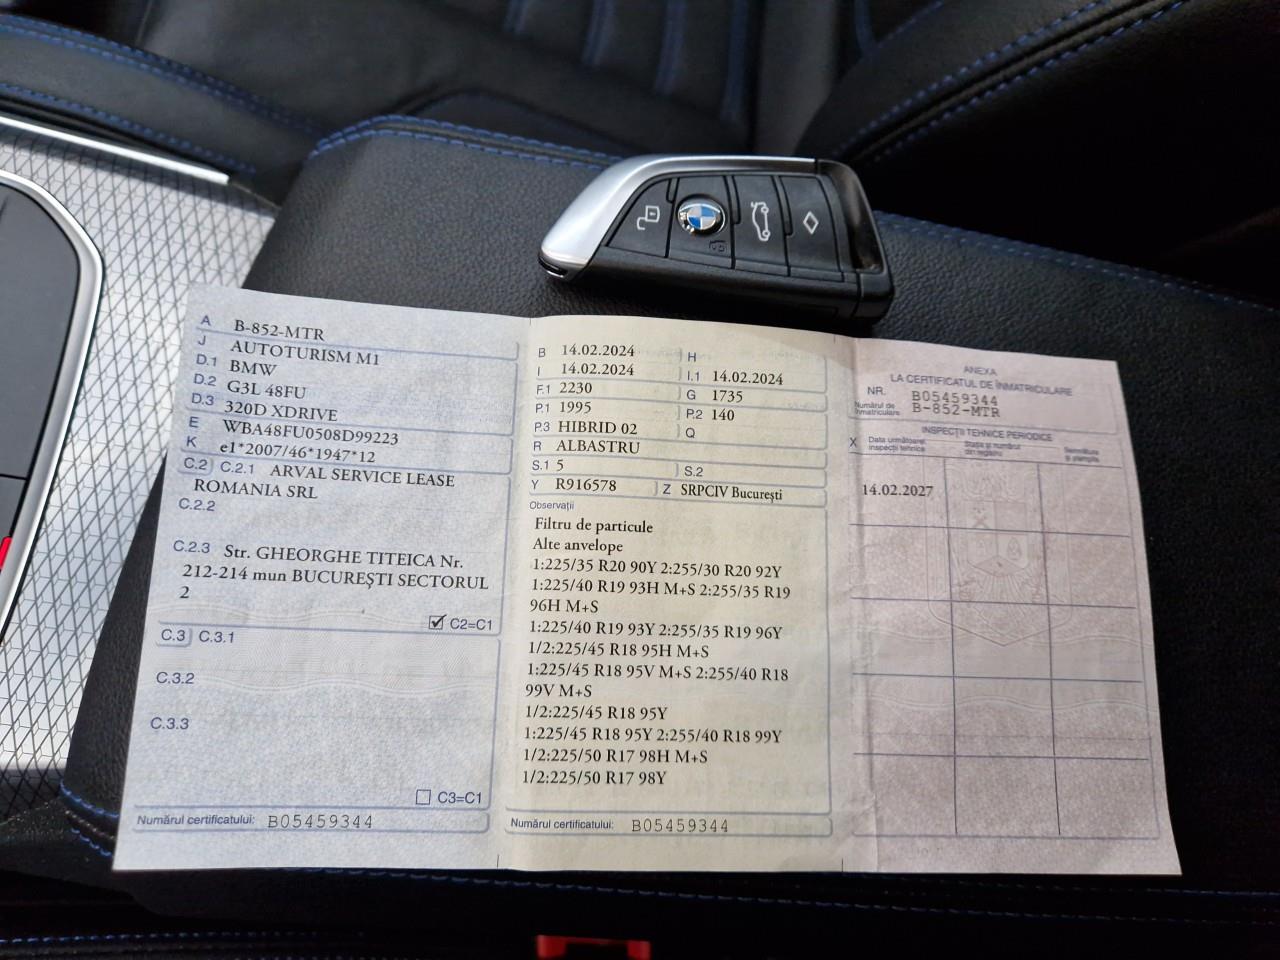 A B-852-MTR
J AUTOTURISM M1
D.1 BMW
D.2 G3L 48FU
D.3 320D XDRIVE
E WBA48FU0508D99223
K e1*2007/46*1947*12
C.2 C.2.1 ARVAL SERVICE LEASE
ROMANIA SRL
C.2.2
C.2.3 Str. GHEORGHE TITEICA Nr.
212-214 mun BUCUREȘTI SECTORUL
2
C2=C1
C.3 C.3.1
C.3.2
C.3.3
C3=C1
Numărul certificatului: B05459344
B 14.02.2024 H
I 14.02.2024 I.1 14.02.2024
F.1 2230 G 1735
P.1 1995 P.2 140
P.3 HIBRID 02 Q
R ALBASTRU
S.1 5 S.2
Y R916578 Z SRPCIV București
Observații
Filtru de particule
Alte anvelope
1:225/35 R20 90Y 2:255/30 R20 92Y
1:225/40 R19 93H M+S 2:255/35 R19
96H M+S
1:225/40 R19 93Y 2:255/35 R19 96Y
1/2:225/45 R18 95H M+S
1:225/45 R18 95V M+S 2:255/40 R18
99V M+S
1/2:225/45 R18 95Y
1:225/45 R18 95Y 2:255/40 R18 99Y
1/2:225/50 R17 98H M+S
1/2:225/50 R17 98Y
Numărul certificatului: B05459344
ANEXA
LA CERTIFICATUL DE ÎNMATRICULARE
NR. B05459344
Numărul de înmatriculare B-852-MTR
INSPECȚII TEHNICE PERIODICE
X Data următoarei inspecții tehnice
Stația și numărul din registru
Semnătura și ștampila
14.02.2027